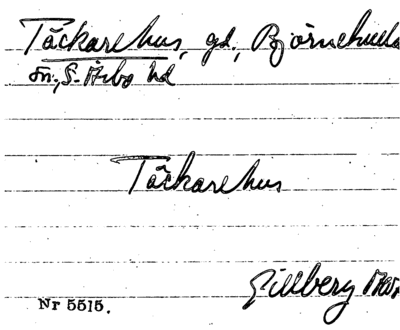 Täckarehus, gd., Björnekulla
sn., S. Åsbo hd
Täckarehus
Gillberg
Nr 5515.